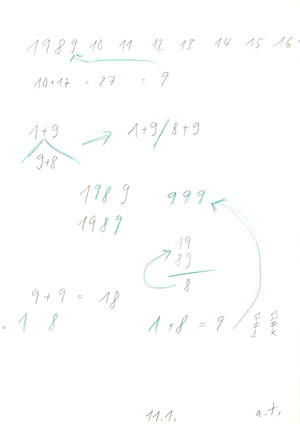 1989 10 11 12 13 14 15 16
10+17 = 27 = 9
1+9 1+9/8+9
9+8
1989 999
1989
19
89
8
9+9 = 18
= 18 1+8 = 9
11.1. a.t.